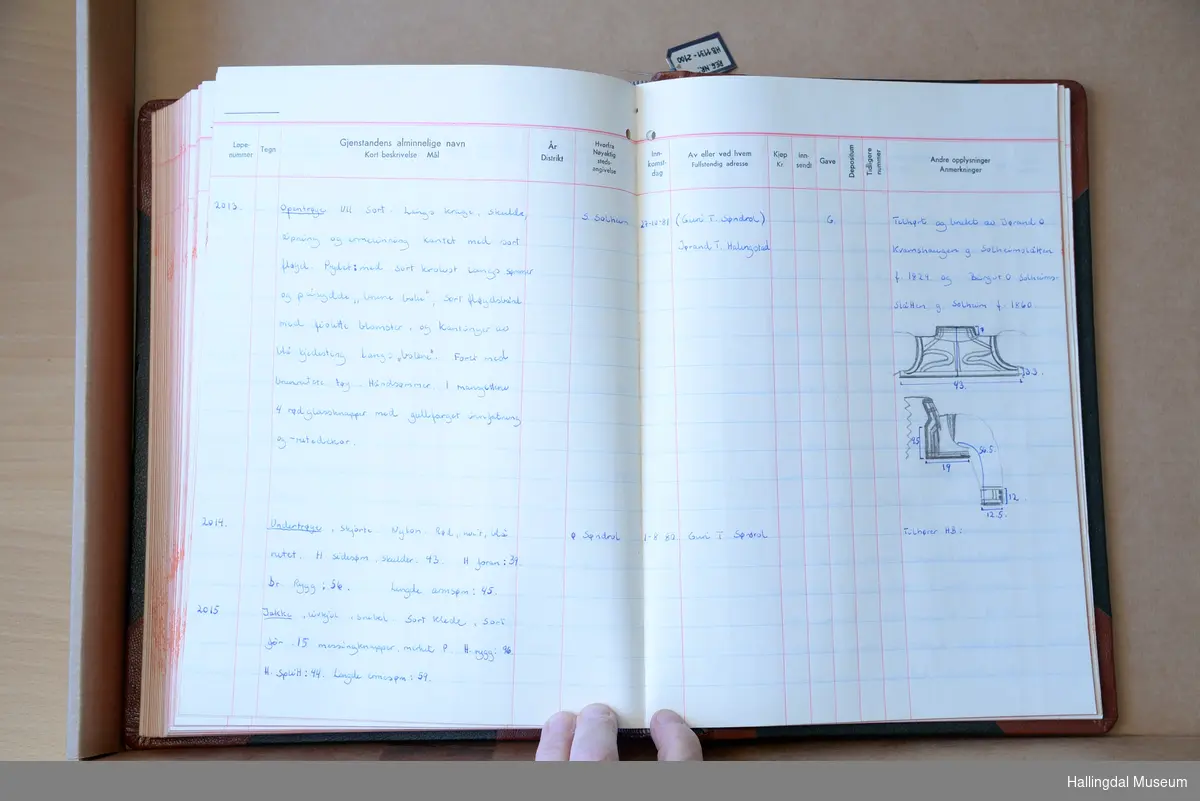 REG. NR.
HB 1131-2100
Løpe-
nummer
Tegn
Gjenstandens alminnelige navn
Kort beskrivelse Mål
År
Distrikt
Hvorfra
Nøyaktig
steds-
angivelse
Inn-
komst-
dag
Av eller ved hvem
Fullstendig adresse
Kjøp
Kr.
Inn-
sendt
Gave
Depositum
Tidligere
nummer
Andre opplysninger
Anmerkninger
2013. Opentrøye Ull sort. Langs krage, skulder,
og ermelinning kantet med sort
fløyel. Pyntet med sort Langs sømmer
og påsydde sort fløyelsbånd
med fiolette blomster, og kantinger av
blå Langs Foret med
tøy. Håndsømmer. I
4 rød glassknapper med gullfarget innfatning
og
S. Solheim
(Guri T. Søndrol)
Jørand T. Halingstad
G.
Tilhørt og brukt av Jørand O
g. Solheimslåtten
f. 1824 og Birgit O Solheims-
slåtten g. Solheim f. 1860
43.
3.3.
9.5
19
56.5.
12
12.5.
2014. Undertrøye, skjorte. Nylon. Rød, hvit, blå
rutet. H sidesøm, skulder. 43. H foran: 39.
br. Rygg: 56. Lengde ermsøm: 45.
Søndrol
Guri T. Søndrol
Tilhører HB:
2015 Jakke, livkjol, snibel. Sort klede, sort
fôr. 15 messingknapper, merket P. H. rygg: 96.
H. splitt: 44. Lengde ermsøm: 59.
Hallingdal Museum